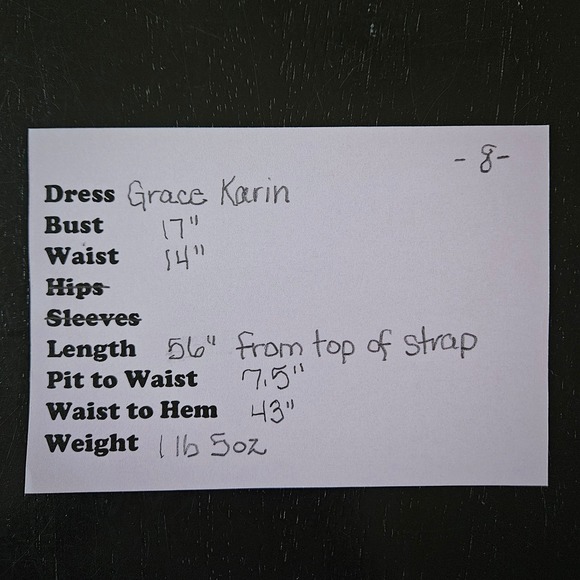 -8-
Dress Grace Karin
Bust 17"
Waist 14"
Hips
Sleeves
Length 56" from top of strap
Pit to Waist 7.5"
Waist to Hem 43"
Weight 1 lb 5oz